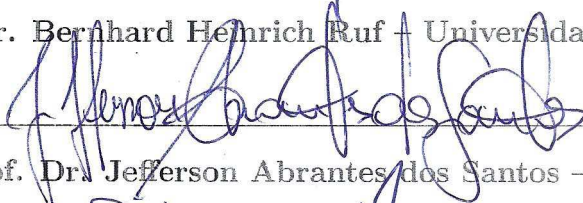 r. Bernhard Heinrich Ruf – Universida
Abrantes dos Santos
of. Dr. Jefferson Abrantes dos Santos –